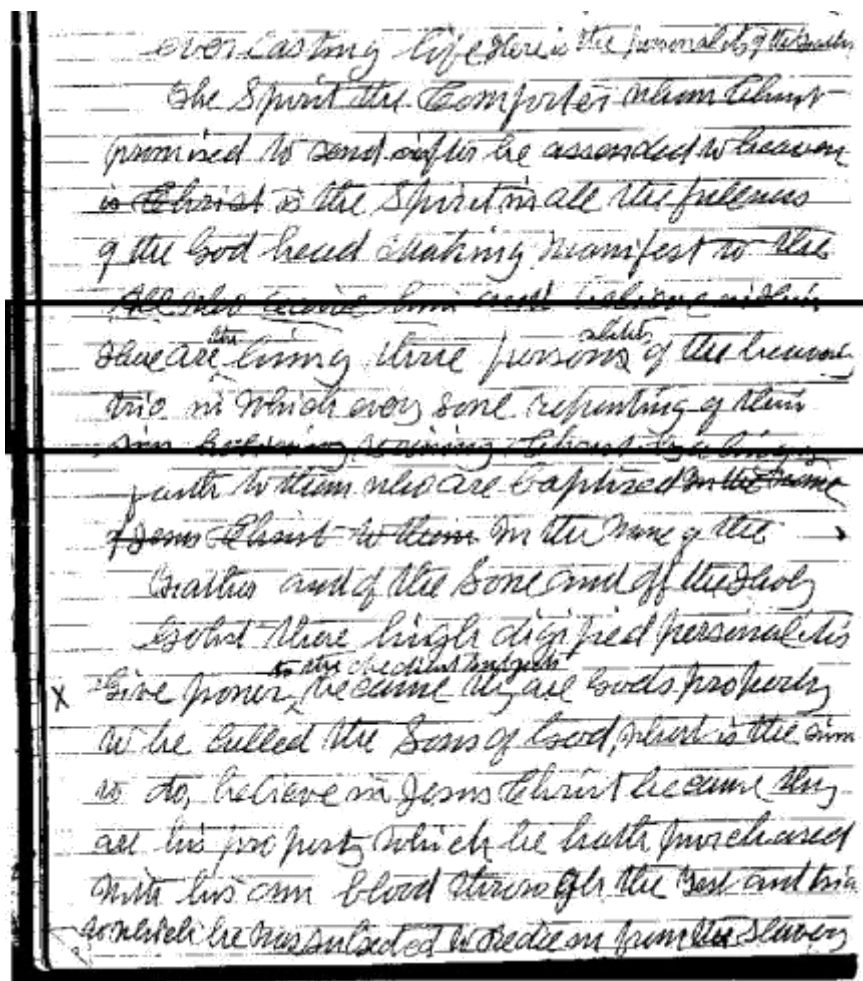 everlasting life Here is the personality of the Father
The Spirit the Comforter whom Christ
promised to send after he assended to heaven
is Christ is the Spirit in all the fulness
of the God head Making Manifest to the
All who receive him and believe in him
There are the living three persons alities of the heavenly
trio in which every sone repenting of their
sin believing receiving Christ by a living
faith to them who are baptised In the name
of Jesus Christ to them In the Name of the
Father and of the Sone and of the Holy
Gohst these high digified personalitis
Give power to the obedient because they are Gods property
to be called the Sons of God, What is the sinn
to do, believe in Jesus Christ because they
are his property which he hath purchased
with his own blood through the test and tria
to which he was to redeem from the slavery